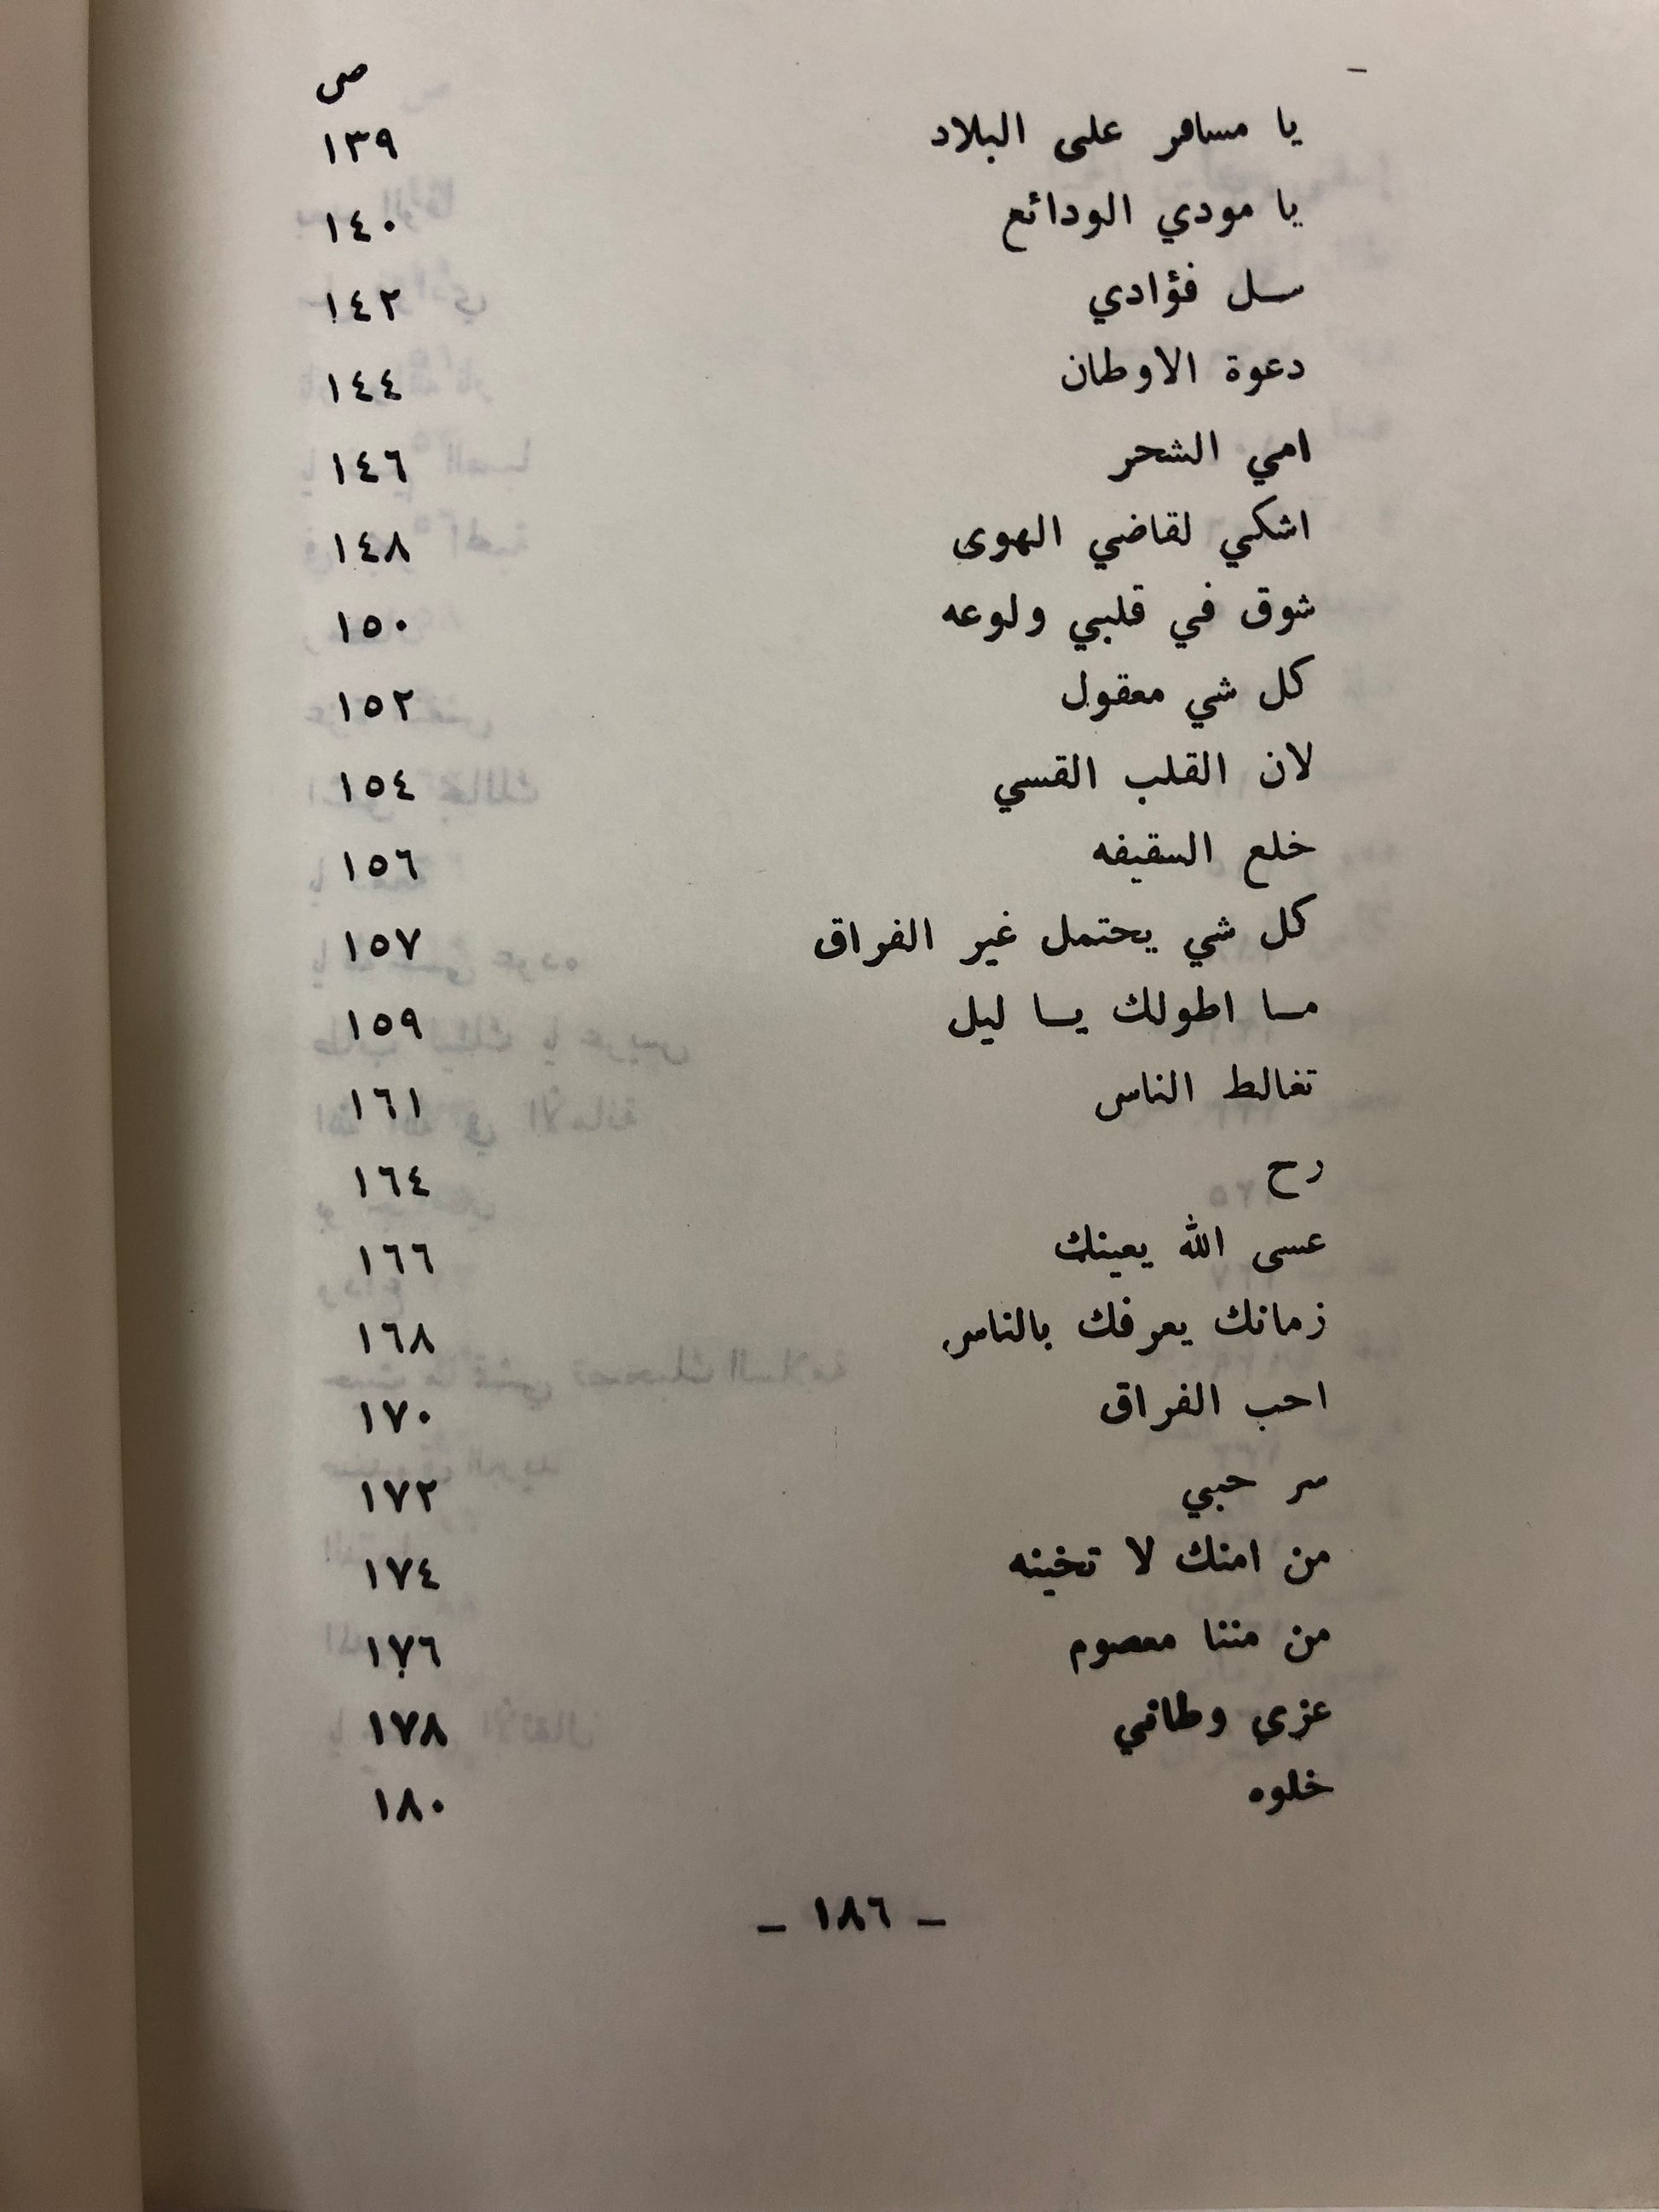 ص
يا مسافر على البلاد ١٣٩
يا مودي الودائع ١٤٠
سل فؤادي ١٤٢
دعوة الاوطان ١٤٤
امي الشحر ١٤٦
اشكي لقاضي الهوى ١٤٨
شوق في قلبي ولوعه ١٥٠
كل شي معقول ١٥٢
لان القلب القسي ١٥٤
خلع السقيفه ١٥٦
كل شي يحتمل غير الفراق ١٥٧
ما اطولك يا ليل ١٥٩
تغالط الناس ١٦١
رح ١٦٤
عسى الله يعينك ١٦٦
زمانك يعرفك بالناس ١٦٨
احب الفراق ١٧٠
سر حبي ١٧٢
من امنك لا تخينه ١٧٤
من مننا معصوم ١٧٦
عزي وطافي ١٧٨
خلوه ١٨٠
– ١٨٦ –